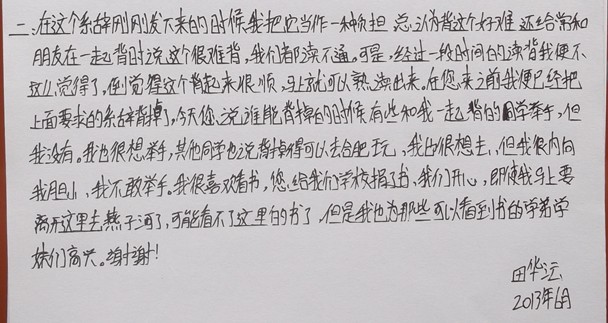 二、在这个系辞刚刚发下来的时候,我把它当作一种负担,总认为背这个好难,还经常和
朋友在一起背时说这个很难背,我们都读不通。可是,经过一段时间的读背我便不
这么觉得了,倒觉得这个背起来很顺,马上就可以熟读出来,在您来之前我便已经把
上面要求的系辞背掉了,今天您说谁能背掉的时候有些和我一起背的同学举手,但
我没有。我也很想举手,其他同学也说背掉得可以去合肥玩,我也很想去,但我很内向
我胆小,我不敢举手。我很喜欢看书,您给我们学校捐了书,我们开心,即使我马上要
离开这里去燕子河了,可能看不了这里的书了,但是我也为那些可以看到书的学弟学
妹们高兴。谢谢!
田华沄
2013年6月